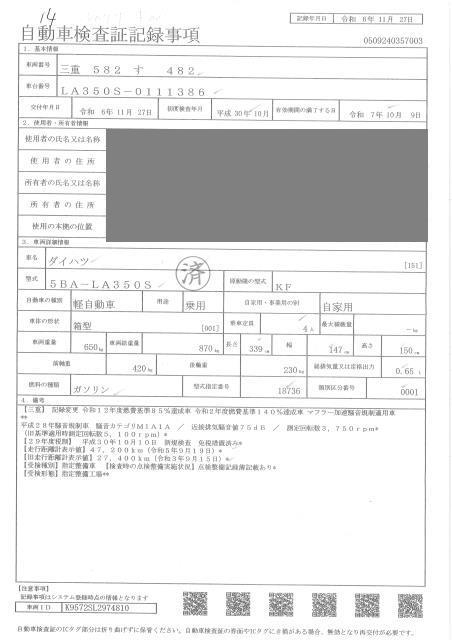 14
記録年月日 令和 6年11月 27日
自動車検査証記録事項
0509240357003
1. 基本情報
車両番号 三重 582 す 482
車台番号 LA350S-0111386
交付年月日 令和 6年11月 27日 初度検査年月 平成 30年10月 有効期間の満了する日 令和 7年10月 9日
2. 使用者・所有者情報
使用者の氏名又は名称
使用者の住所
所有者の氏名又は名称
所有者の住所
使用の本拠の位置
3. 車両詳細情報
車名 ダイハツ [151]
済
型式 5BA-LA350S 原動機の型式 KF
自動車の種別 軽自動車 用途 乗用 自家用・事業用の別 自家用
車体の形状 箱型 [001] 乗車定員 4人 最大積載量 -kg
車両重量 650kg 車両総重量 870kg 長さ 339cm 幅 147cm 高さ 150cm
前軸重 420kg 後軸重 230kg 総排気量又は定格出力 0.65L
燃料の種類 ガソリン 型式指定番号 18736 類別区分番号 0001
4. 備考
【三重】 記録変更 令和12年度燃費基準85%達成車 令和2年度燃費基準140%達成車 マフラー加速騒音規制適用車
**
平成28年騒音規制車 騒音カテゴリM1A1A / 近接排気騒音値75dB / 測定回転数3,750rpm**
(旧基準適用時測定回転数5,100rpm)**
【29年度税制】 平成30年10月10日 新規検査 免税措置済み**
【走行距離計表示値】47,200km(令和5年9月19日)**
【旧走行距離計表示値】27,400km(令和3年9月15日)**
【受検種別】指定整備車 【検査時の点検整備実施状況】点検整備記録簿記載あり**
【受検形態】指定整備工場**
【注意事項】
記録事項はシステム登録時点の情報となります
車両ID K9572SL2974810
自動車検査証のICタグ部分は折り曲げずに保管ください。自動車検査証の券面やICタグにき損がある場合、無効となり再交付が必要です。